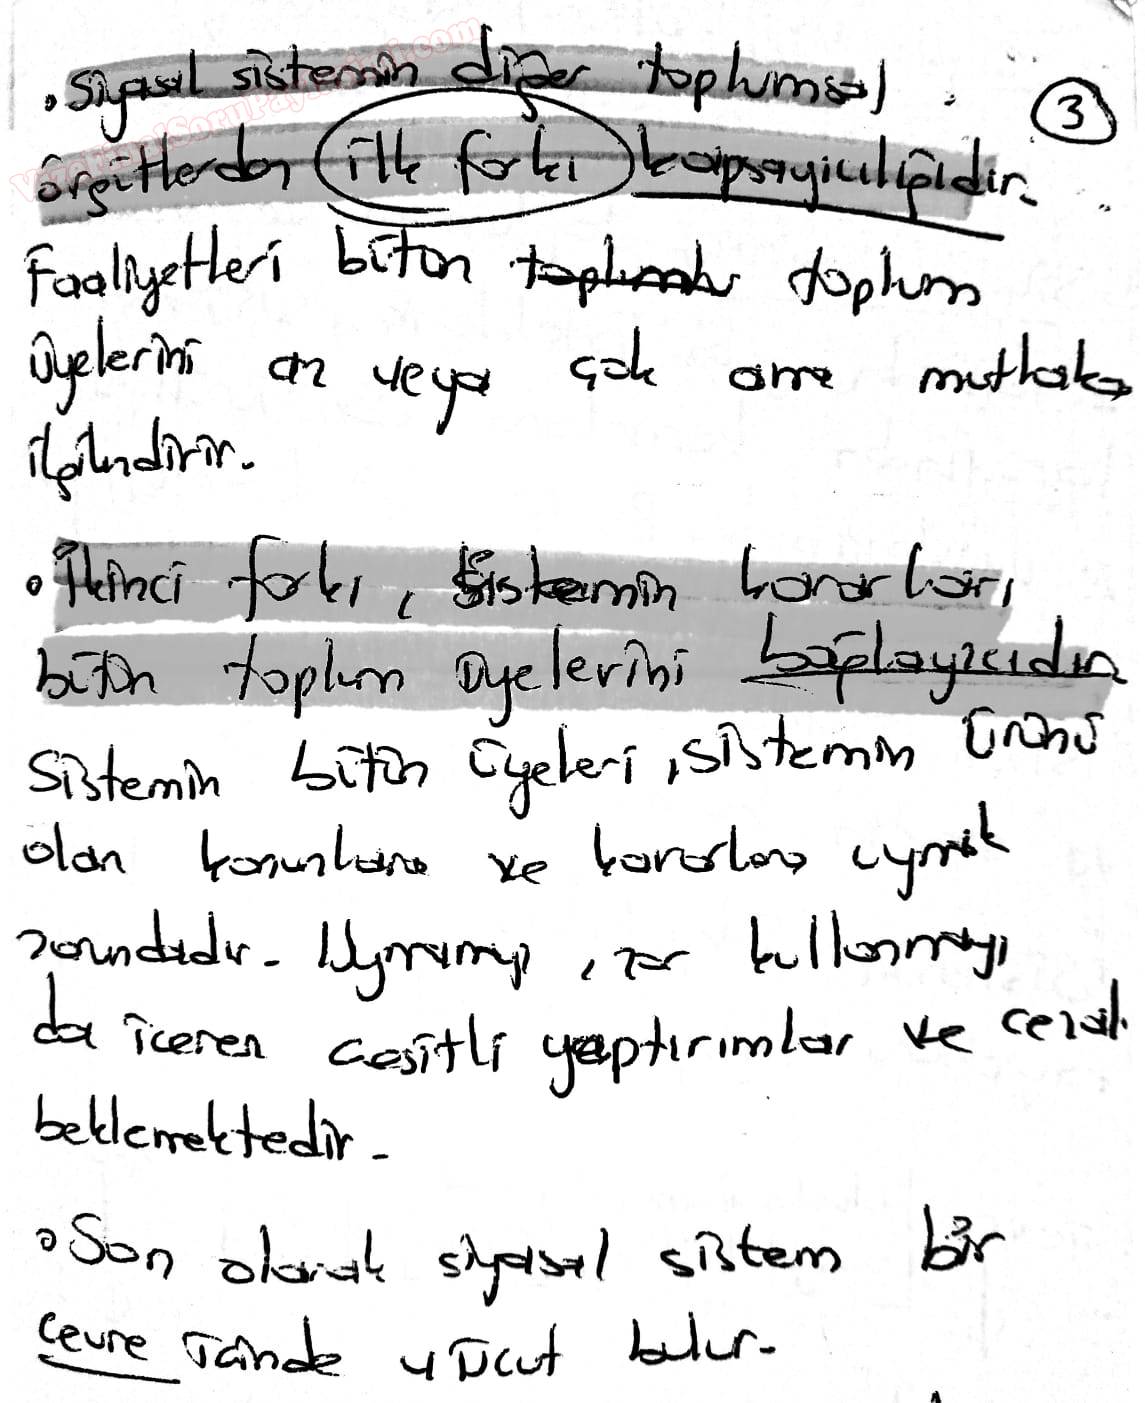 • Siyasal sistemin diğer toplumsal
③
örgütlerden ilk farkı kapsayıcılığıdır.
Faaliyetleri bütün toplum
üyelerini az veya çok ama mutlaka
ilgilendirir.
• İkinci farkı, sistemin kararları
bütün toplum üyelerini bağlayıcıdır.
Sistemin bütün üyeleri, sistemin ürünü
olan kanunlara ve kararlara uymak
zorundadır. Uymamayı, zor kullanmayı
da içeren çeşitli yaptırımlar ve cezalar
beklemektedir.
• Son olarak siyasal sistem bir
çevre içinde vücut bulur.